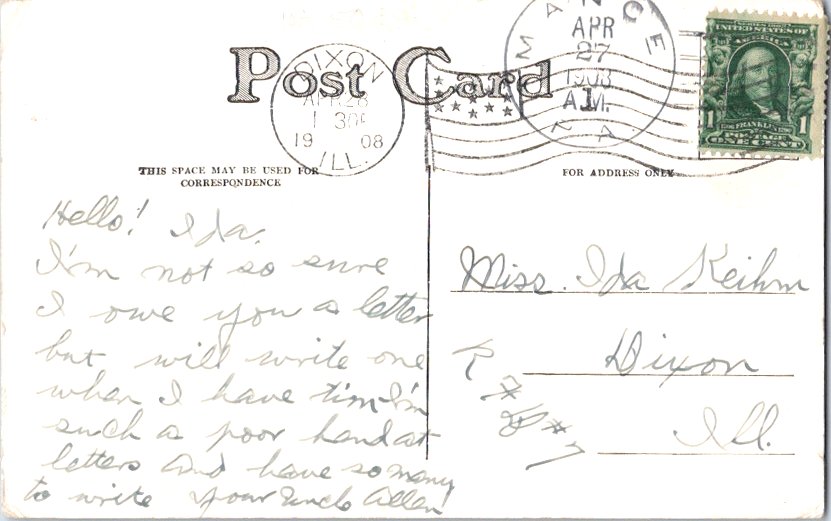 Post Card
DIXON
APR 28
1 30P
1908
ILL.
MANCE
APR
27
1908
A.M.
IA
UNITED STATES OF
AMERICA
1
FRANKLIN
POSTAGE
ONE CENT
1
THIS SPACE MAY BE USED FOR
CORRESPONDENCE
FOR ADDRESS ONLY
Hello! Ida.
I'm not so sure
I owe you a letter
but will write one
when I have tim I'm
such a poor hand at
letters and have so many
to write your Uncle Allen
Miss. Ida Keihm
Dixon
Ill.
R #7